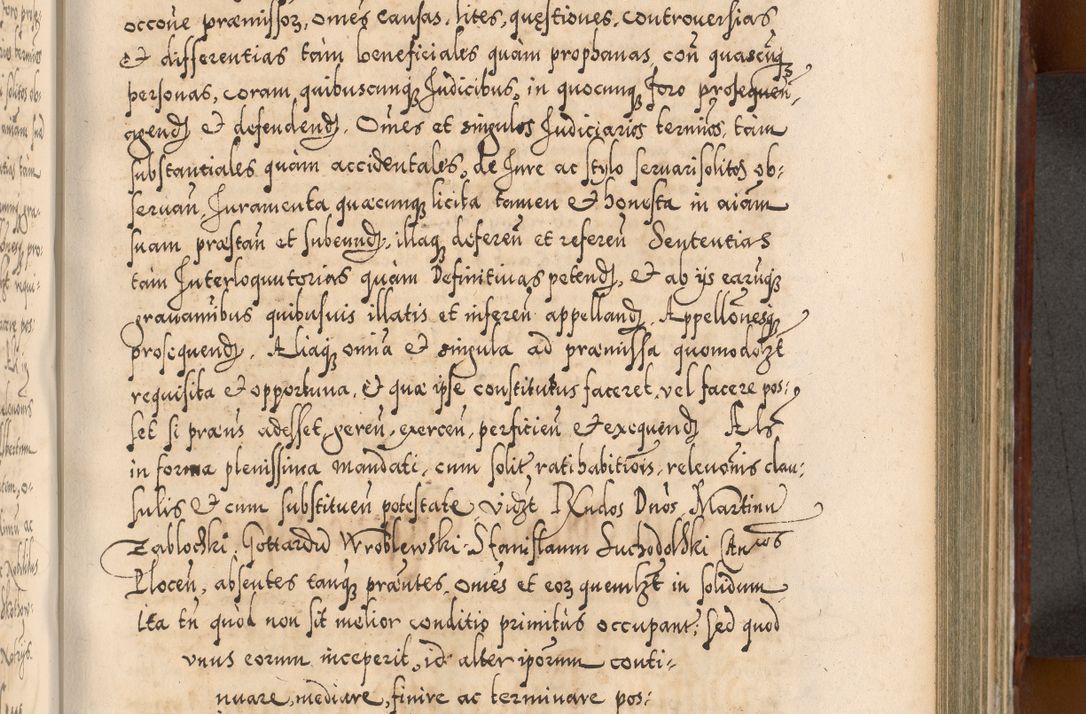 occone præmissoꝝ, omēs causas, lites, quęstiones, controuersias
Et differentias tàm beneficiales quàm prophanas, coñ quascūqꝫ
personas, coram quibuscunqꝫ Judicibus, in quocunqꝫ Foro prosequeñ,
agendꝫ et defendendꝫ. Omēs et singulos Judiciarios termios, tàm
substantiales quàm accidentales, de Jure ac stylo seruari solitos ob:
seruañ. Juramenta quæcunqꝫ licita tamen et honesta in aiām
suam præstañ et subeundꝫ, illaqꝫ defereñ et refereñ Sententias
tàm Interloquutorias quàm Definitiuas petendꝫ, et ab ijs earūqꝫ
grauamibus quibusuis illatis et infereñ appellandꝫ. Appellōnesqꝫ
prosequendꝫ. Aliaqꝫ omīa et singula ad præmissa quomodolꝫt
requisita et opportuna, et quæ ipse constitutus faceret, vel facere pos:
set si præns adesset, gereñ, exerceñ, perficieñ et exequendꝫ Als
in forma plenissima mandati, cum solit ratihabitiois, releuōnis clau:
sulis et cum substitueñ potestate vidꝫt RXndos Dnōs Martinū
Zabloc̄ki, Gottardū Wroblewski, Stanislaum Suchodolski Cancos
Ploceñ, absētes tanqꝫ præntes, omēs et eoꝝ quemlꝫt in solidum
Ita tñ quòd non sit melior conditio primitùs occupant, sed quod
vnus eorum inceperit, id alter iporum conti-
nuare, mediare, finire ac terminare pos: